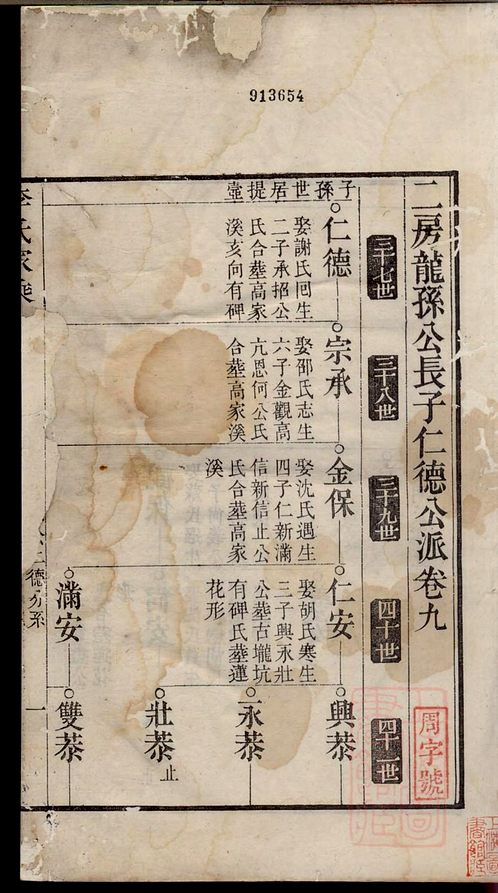 913654
二房龍孫公長子仁德公派卷九
周字號
三十七世
三十八世
三十九世
四十世
四十一世
子孫世居提壺
仁德
娶謝氏囘生
二子承招公
氏合葬高家
溪亥向有碑
宗承
娶邵氏志生
六子金觀高
亢恩何公氏
合葬高家溪
金保
娶沈氏遇生
四子仁新滿
信新信止公
氏合葬高家
溪
仁安
娶胡氏寒生
三子興永壯
公葬古壠坑
有碑氏葬蓮
花形
興恭
永恭
壯恭
止
滿安
雙恭
氏家乘
德分系
一